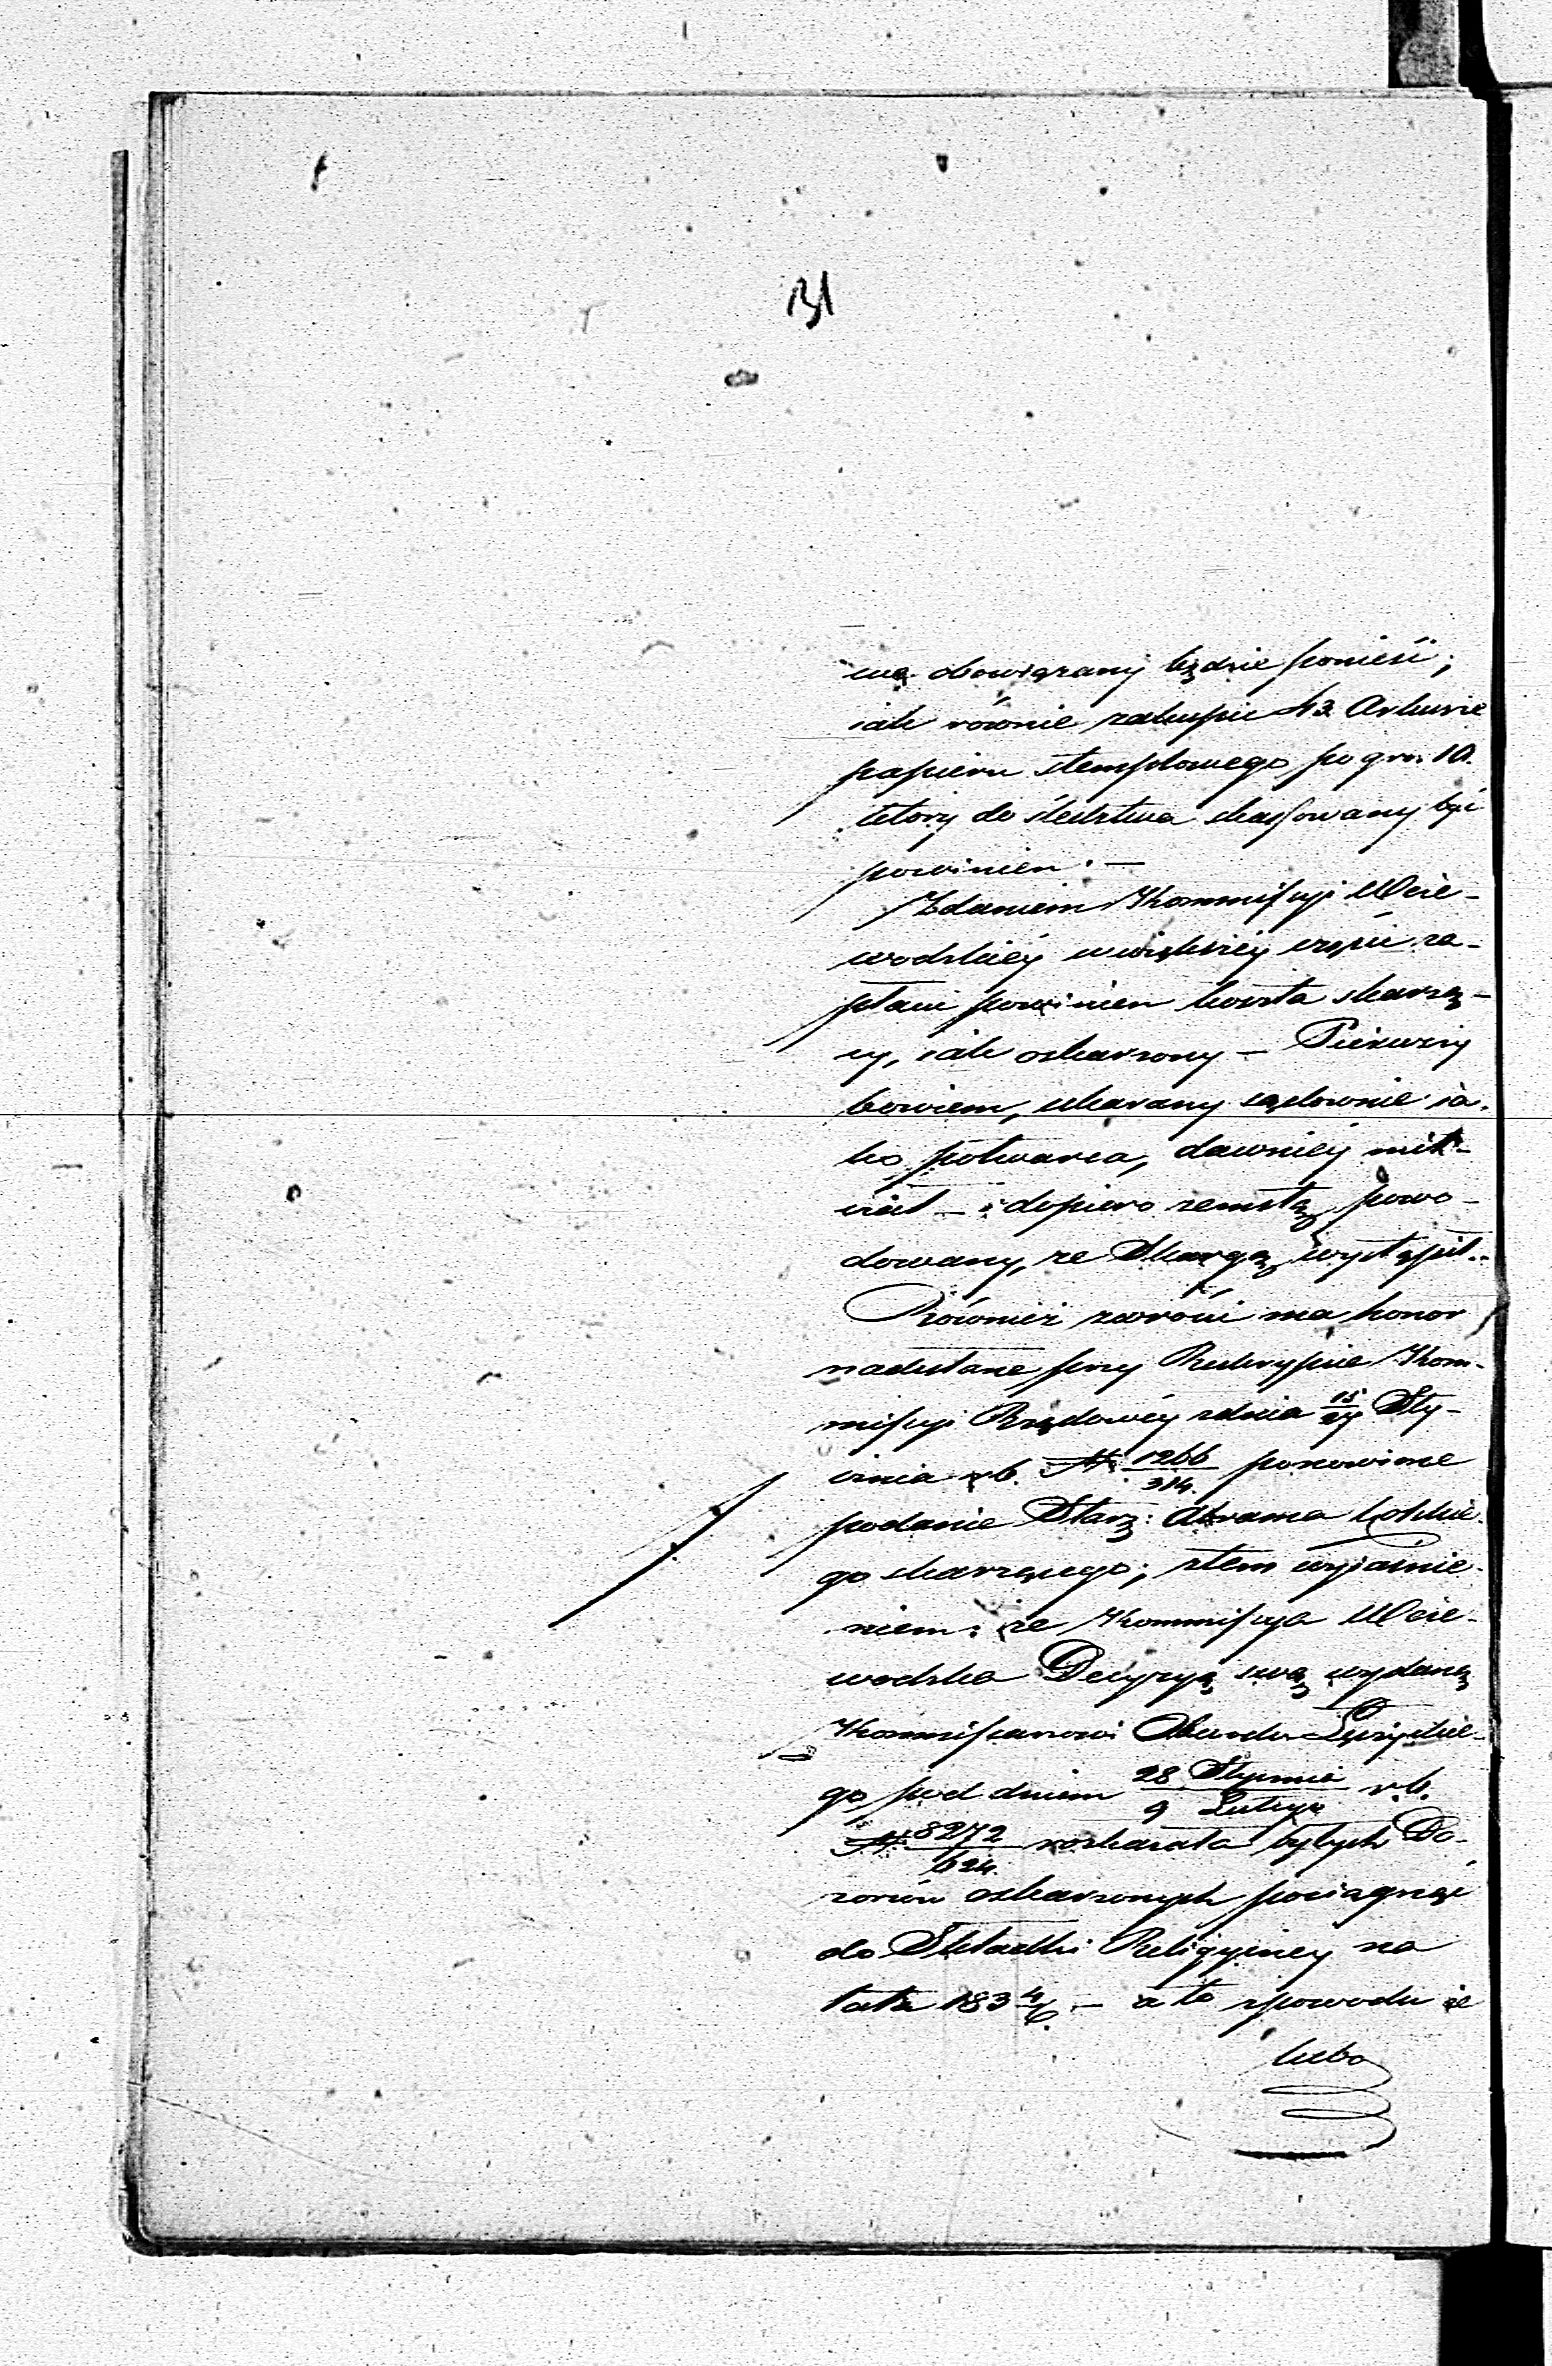 131
wę obowiązany będzie ponieść;
iak równie zakupić 43 Arkusze
papieru stemplowego po gr. 10.
który do śledztwa skassowany być
powinien. —
Zdaniem Kommissyi Woie-
wodzkiéy w większéy części za-
płacić powinien koszta skarżą-
cy, iak oskarżony — Pierwszy
bowiem, ukarany sądownie ia-
ko potwarca, dawniéy mil-
czał — i dopiero zemstą powo-
dowany, ze Skargą wystąpił..
Również zwrócić ma honor
nadesłane przy Reskrypcie Kom-
missyi Rządowéy z dnia 15/27 Sty-
cznia r.b. N: 1266/314. ponowione
podanie Starz: Abrama
go skarzącego; z tem wyiaśnie-
niem: że Kommissya Woie-
wodzka Decyzyą swą wydaną
Kommissarzowi Obwodu Łęczyckie-
go, pod dniem 28 Stycznia/9 Lutego r.b.
N: 8272/624. rozkazała byłych Do-
zorców oskarzonych pociągnąć
do Składki Religyiney na
lata 183 4/6. — a to z powodu że
lubo